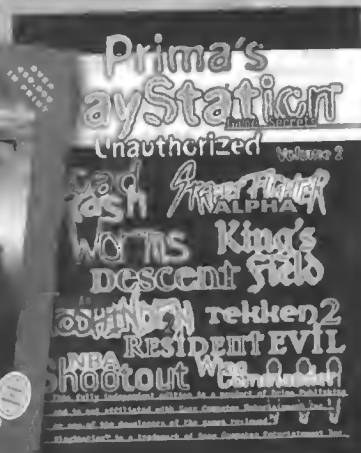 Prima's
ayStation
Game Secrets
Unauthorized
Volume 2
oad
ash
STREET FIGHTER
ALPHA
WORMS
King's
Field
DESCENT
TOSHINDEN
TEKKEN 2
RESIDENT EVIL
NBA
Shootout
Wing
Commander
This fully independent edition is a product of Prima Publishing
and is not affiliated with Sony Computer Entertainment Inc.
or any of the developers of the games reviewed.
PlayStation™ is a trademark of Sony Computer Entertainment Inc.